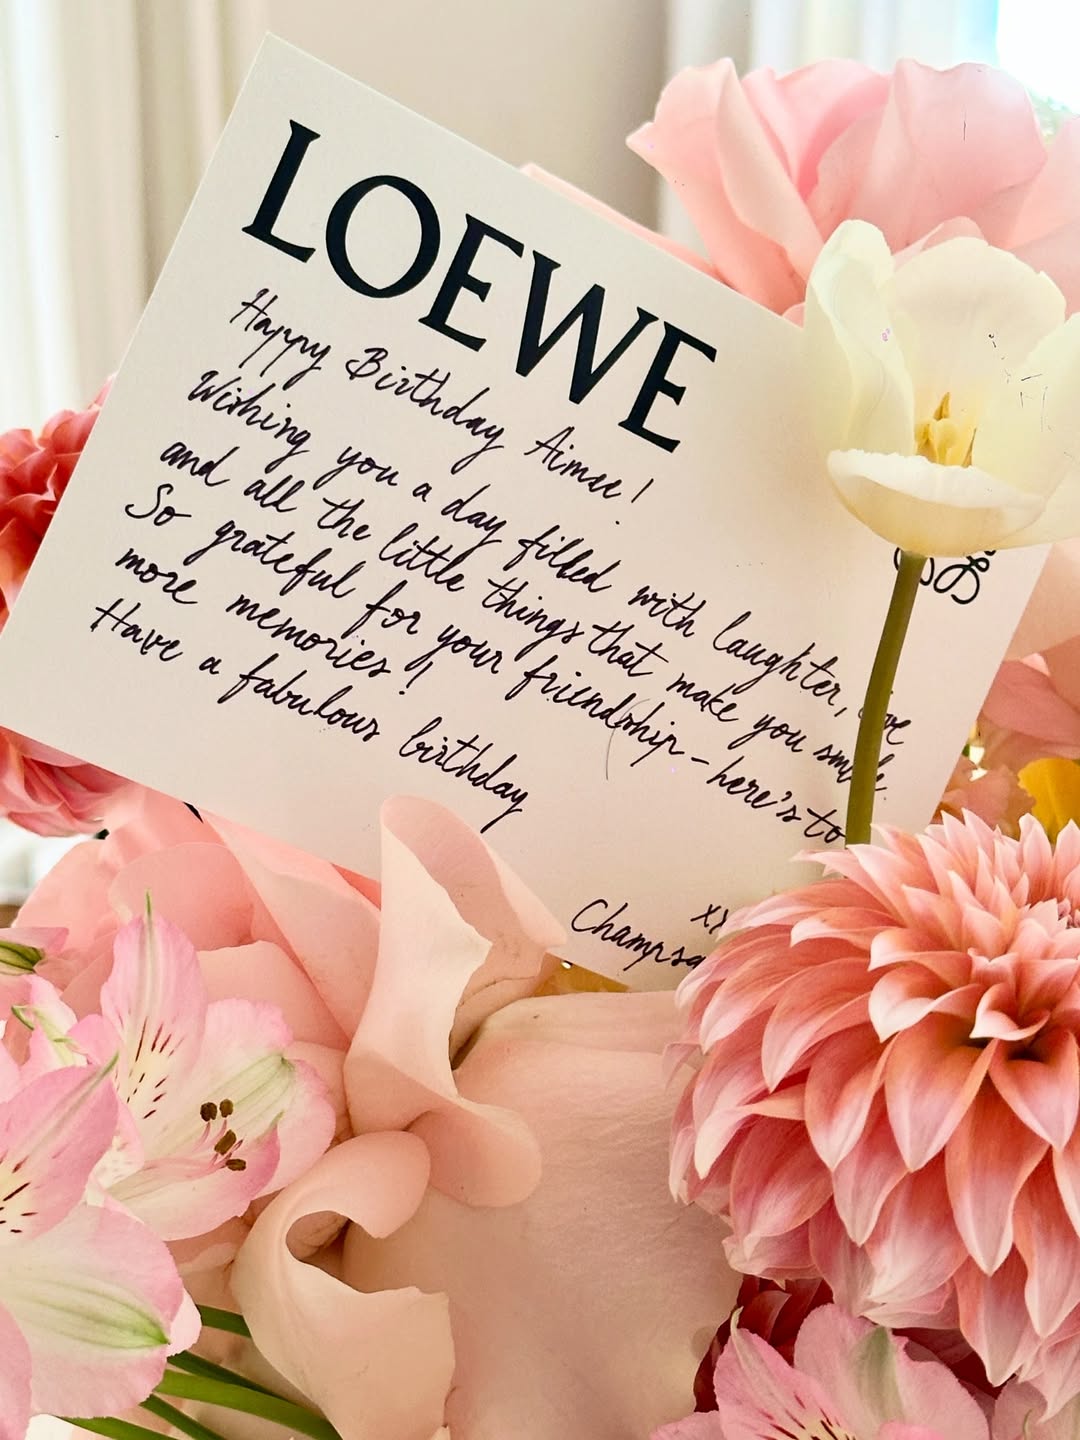 LOEWE
Happy Birthday Aimee!
Wishing you a day filled with laughter,
and all the little things that make you smile.
So grateful for your friendship - here's to
more memories!
Have a fabulous birthday